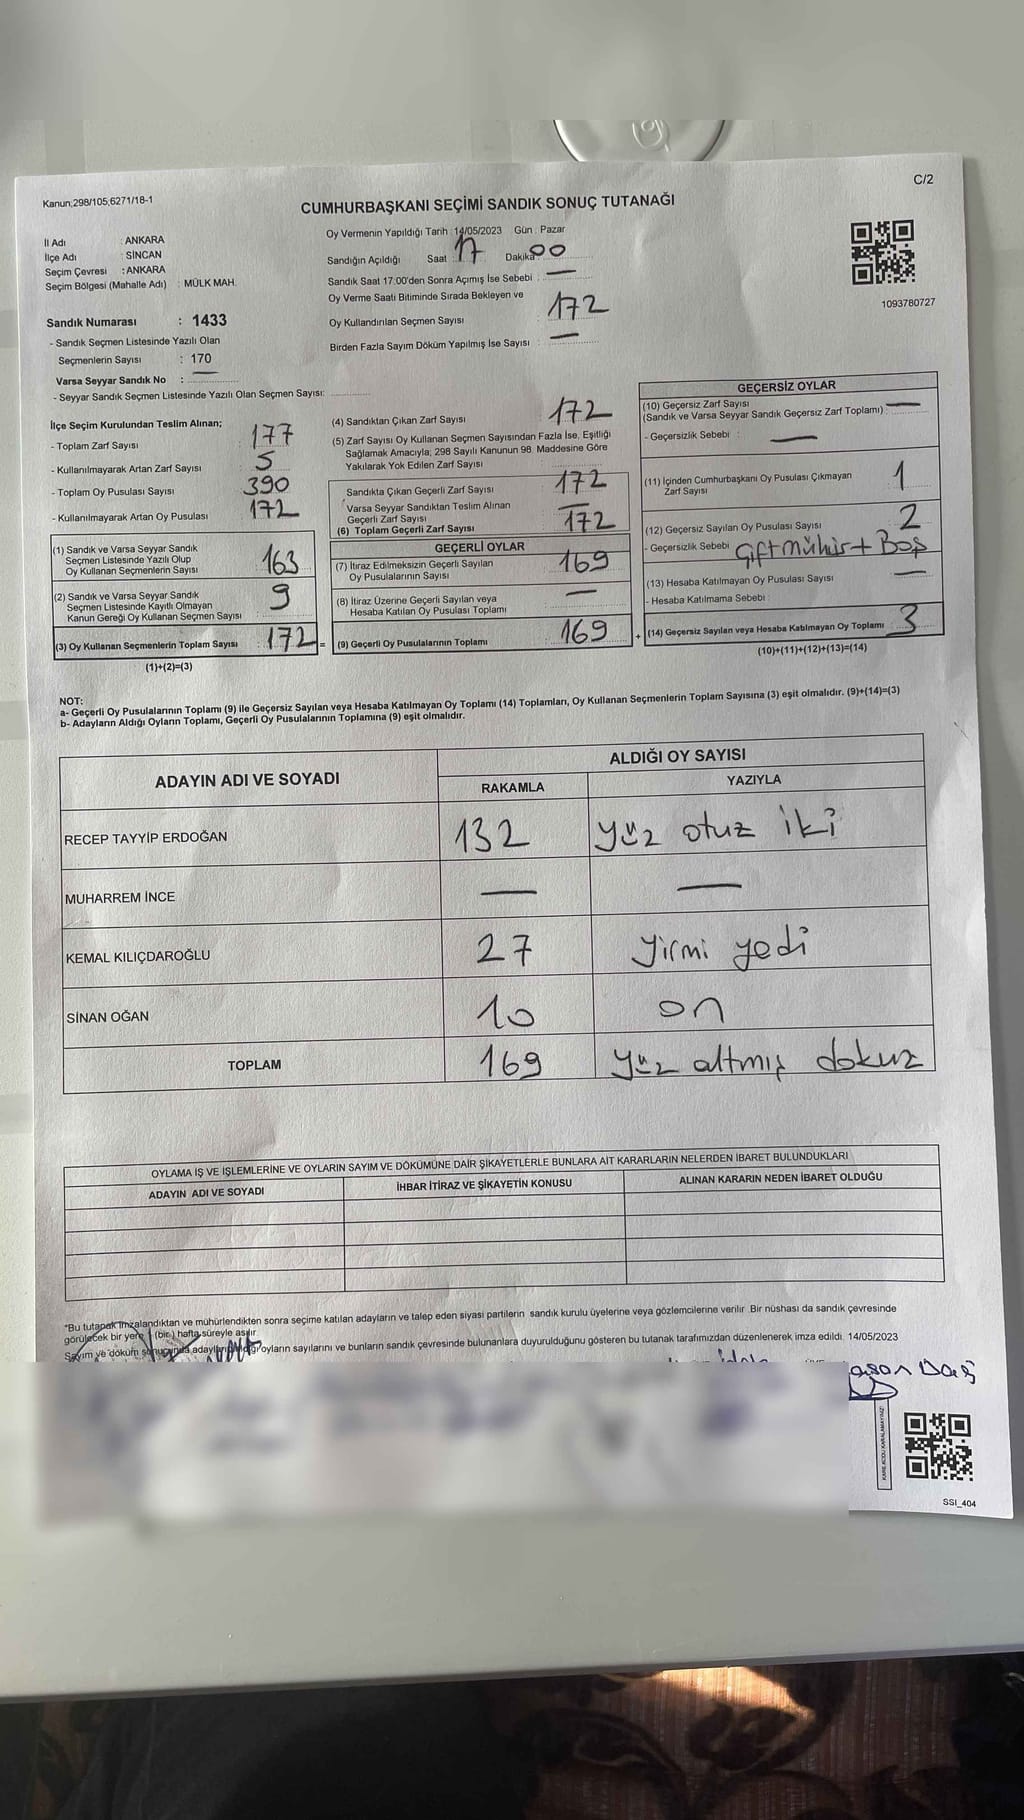 C/2
Kanun;298/105;6271/18-1
CUMHURBAŞKANI SEÇİMİ SANDIK SONUÇ TUTANAĞI
İl Adı : ANKARA
İlçe Adı : SİNCAN
Seçim Çevresi : ANKARA
Seçim Bölgesi (Mahalle Adı) : MÜLK MAH.
Sandık Numarası : 1433
- Sandık Seçmen Listesinde Yazılı Olan
Seçmenlerin Sayısı : 170
Varsa Seyyar Sandık No : —
- Seyyar Sandık Seçmen Listesinde Yazılı Olan Seçmen Sayısı:
Oy Vermenin Yapıldığı Tarih : 14/05/2023 Gün : Pazar
Sandığın Açıldığı Saat : 17 Dakika 00
Sandık Saat 17:00'den Sonra Açımış İse Sebebi : —
Oy Verme Saati Bitiminde Sırada Bekleyen ve
Oy Kullandırılan Seçmen Sayısı : 172
Birden Fazla Sayım Döküm Yapılmış İse Sayısı : —
1093780727
İlçe Seçim Kurulundan Teslim Alınan;
- Toplam Zarf Sayısı : 177
- Kullanılmayarak Artan Zarf Sayısı : 5
- Toplam Oy Pusulası Sayısı : 390
- Kullanılmayarak Artan Oy Pusulası : 172
(1) Sandık ve Varsa Seyyar Sandık
Seçmen Listesinde Yazılı Olup
Oy Kullanan Seçmenlerin Sayısı : 163
(2) Sandık ve Varsa Seyyar Sandık
Seçmen Listesinde Kayıtlı Olmayan
Kanun Gereği Oy Kullanan Seçmen Sayısı : 9
(3) Oy Kullanan Seçmenlerin Toplam Sayısı : 172 =
(1)+(2)=(3)
(4) Sandıktan Çıkan Zarf Sayısı : 172
(5) Zarf Sayısı Oy Kullanan Seçmen Sayısından Fazla İse, Eşitliği
Sağlamak Amacıyla; 298 Sayılı Kanunun 98. Maddesine Göre
Yakılarak Yok Edilen Zarf Sayısı :
Sandıkta Çıkan Geçerli Zarf Sayısı : 172
Varsa Seyyar Sandıktan Teslim Alınan
Geçerli Zarf Sayısı : —
(6) Toplam Geçerli Zarf Sayısı : 172
GEÇERLİ OYLAR
(7) İtiraz Edilmeksizin Geçerli Sayılan
Oy Pusulalarının Sayısı : 169
(8) İtiraz Üzerine Geçerli Sayılan veya
Hesaba Katılan Oy Pusulası Toplamı : —
(9) Geçerli Oy Pusulalarının Toplamı : 169 +
GEÇERSİZ OYLAR
(10) Geçersiz Zarf Sayısı
(Sandık ve Varsa Seyyar Sandık Geçersiz Zarf Toplamı) : —
- Geçersizlik Sebebi : —
(11) İçinden Cumhurbaşkanı Oy Pusulası Çıkmayan
Zarf Sayısı : 1
(12) Geçersiz Sayılan Oy Pusulası Sayısı : 2
- Geçersizlik Sebebi : Çift mühür + Boş
(13) Hesaba Katılmayan Oy Pusulası Sayısı : —
- Hesaba Katılmama Sebebi :
(14) Geçersiz Sayılan veya Hesaba Katılmayan Oy Toplamı : 3
(10)+(11)+(12)+(13)=(14)
NOT:
a- Geçerli Oy Pusulalarının Toplamı (9) ile Geçersiz Sayılan veya Hesaba Katılmayan Oy Toplamı (14) Toplamları, Oy Kullanan Seçmenlerin Toplam Sayısına (3) eşit olmalıdır. (9)+(14)=(3)
b- Adayların Aldığı Oyların Toplamı, Geçerli Oy Pusulalarının Toplamına (9) eşit olmalıdır.
ADAYIN ADI VE SOYADI ALDIĞI OY SAYISI
RAKAMLA YAZIYLA
RECEP TAYYİP ERDOĞAN 132 yüz otuz iki
MUHARREM İNCE — —
KEMAL KILIÇDAROĞLU 27 yirmi yedi
SİNAN OĞAN 10 on
TOPLAM 169 yüz altmış dokuz
OYLAMA İŞ VE İŞLEMLERİNE VE OYLARIN SAYIM VE DÖKÜMÜNE DAİR ŞİKAYETLERLE BUNLARA AİT KARARLARIN NELERDEN İBARET BULUNDUKLARI
ADAYIN ADI VE SOYADI İHBAR İTİRAZ VE ŞİKAYETİN KONUSU ALINAN KARARIN NEDEN İBARET OLDUĞU
*Bu tutanak imzalandıktan ve mühürlendikten sonra seçime katılan adayların ve talep eden siyasi partilerin sandık kurulu üyelerine veya gözlemcilerine verilir. Bir nüshası da sandık çevresinde
görülecek bir yere 1 (bir) hafta süreyle asılır.
Sayım ve döküm sonucunda adayların aldığı oyların sayılarını ve bunların sandık çevresinde bulunanlara duyurulduğunu gösteren bu tutanak tarafımızdan düzenlenerek imza edildi. 14/05/2023
KARE KODU KARALAMAYINIZ
SSI_404